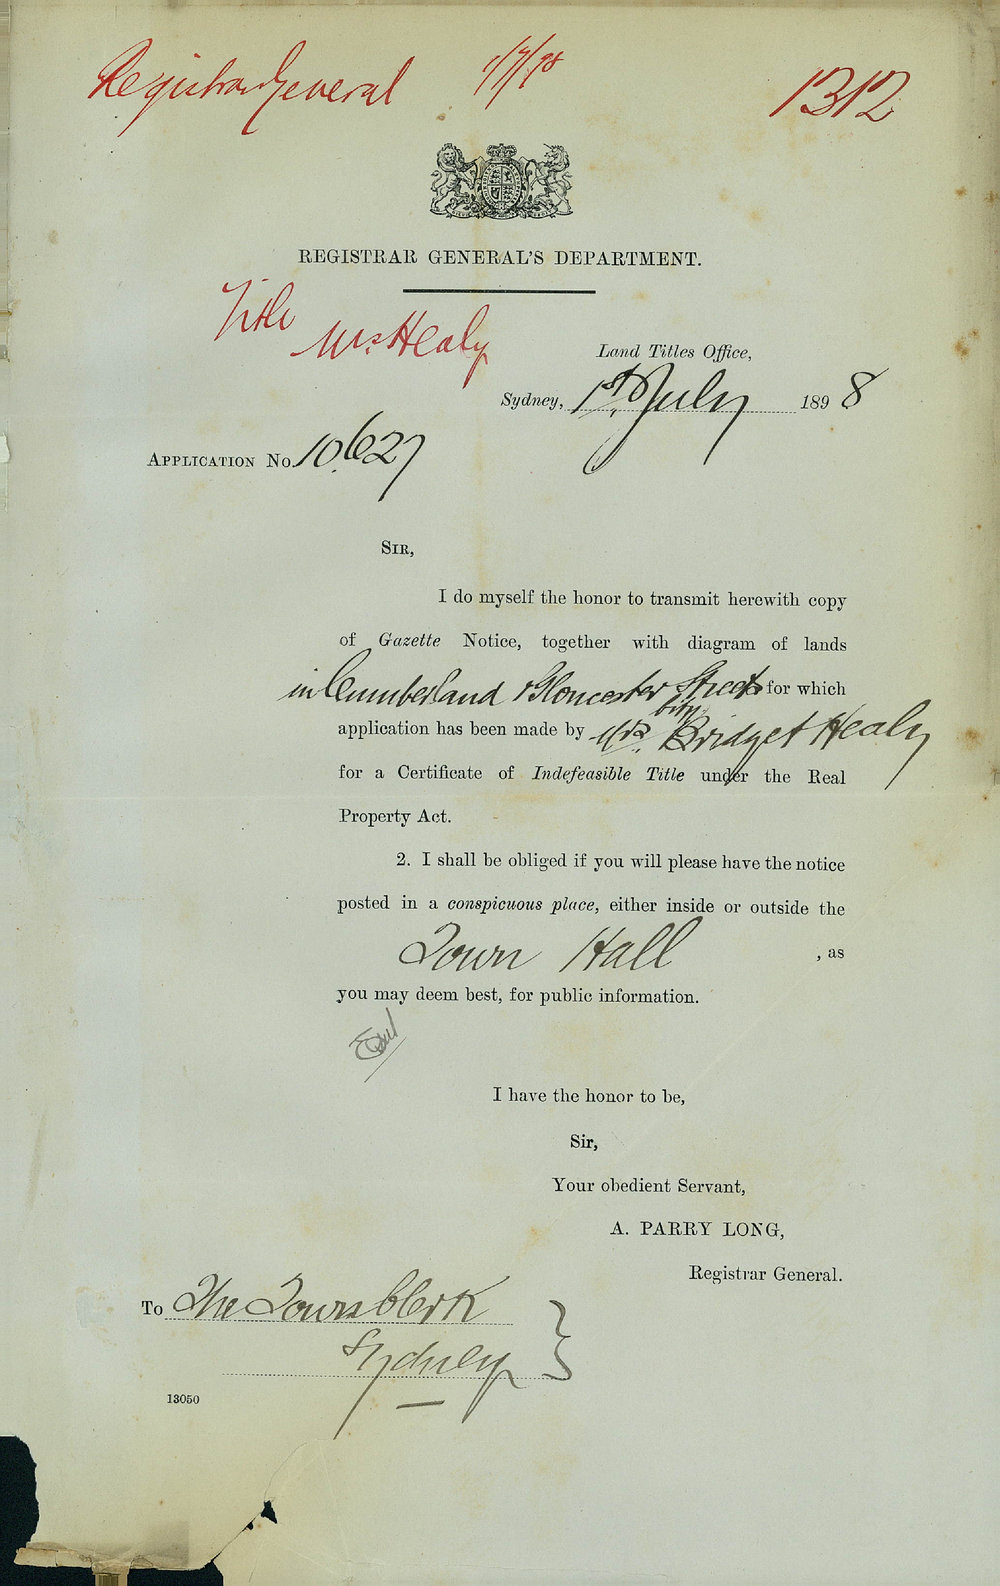 Registrar General 1/7/98 1312
REGISTRAR GENERAL'S DEPARTMENT.
Title
Mrs Healy
Land Titles Office,
Sydney, 1st July 1898
APPLICATION No. 10,627
SIR,
I do myself the honor to transmit herewith copy
of Gazette Notice, together with diagram of lands
in Cumberland & Gloucester Streets for which
City
application has been made by Mrs. Bridget Healy
for a Certificate of Indefeasible Title under the Real
Property Act.
2. I shall be obliged if you will please have the notice
posted in a conspicuous place, either inside or outside the
Town Hall , as
you may deem best, for public information.
I have the honor to be,
Sir,
Your obedient Servant,
A. PARRY LONG,
Registrar General.
To The Town Clerk
Sydney
13050